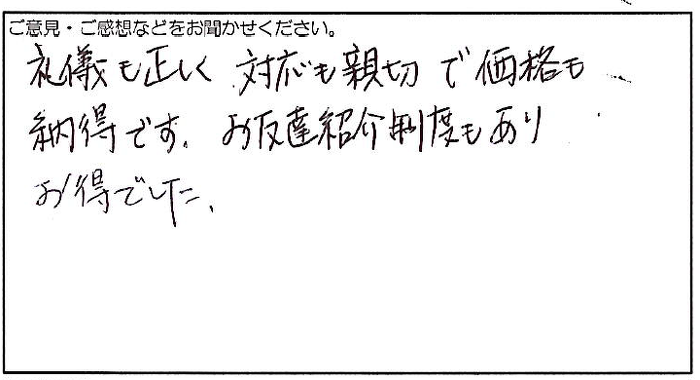 ご意見・ご感想などをお聞かせください。
礼儀も正しく 対応も親切で価格も
納得です。お友達紹介制度もあり
お得でした。